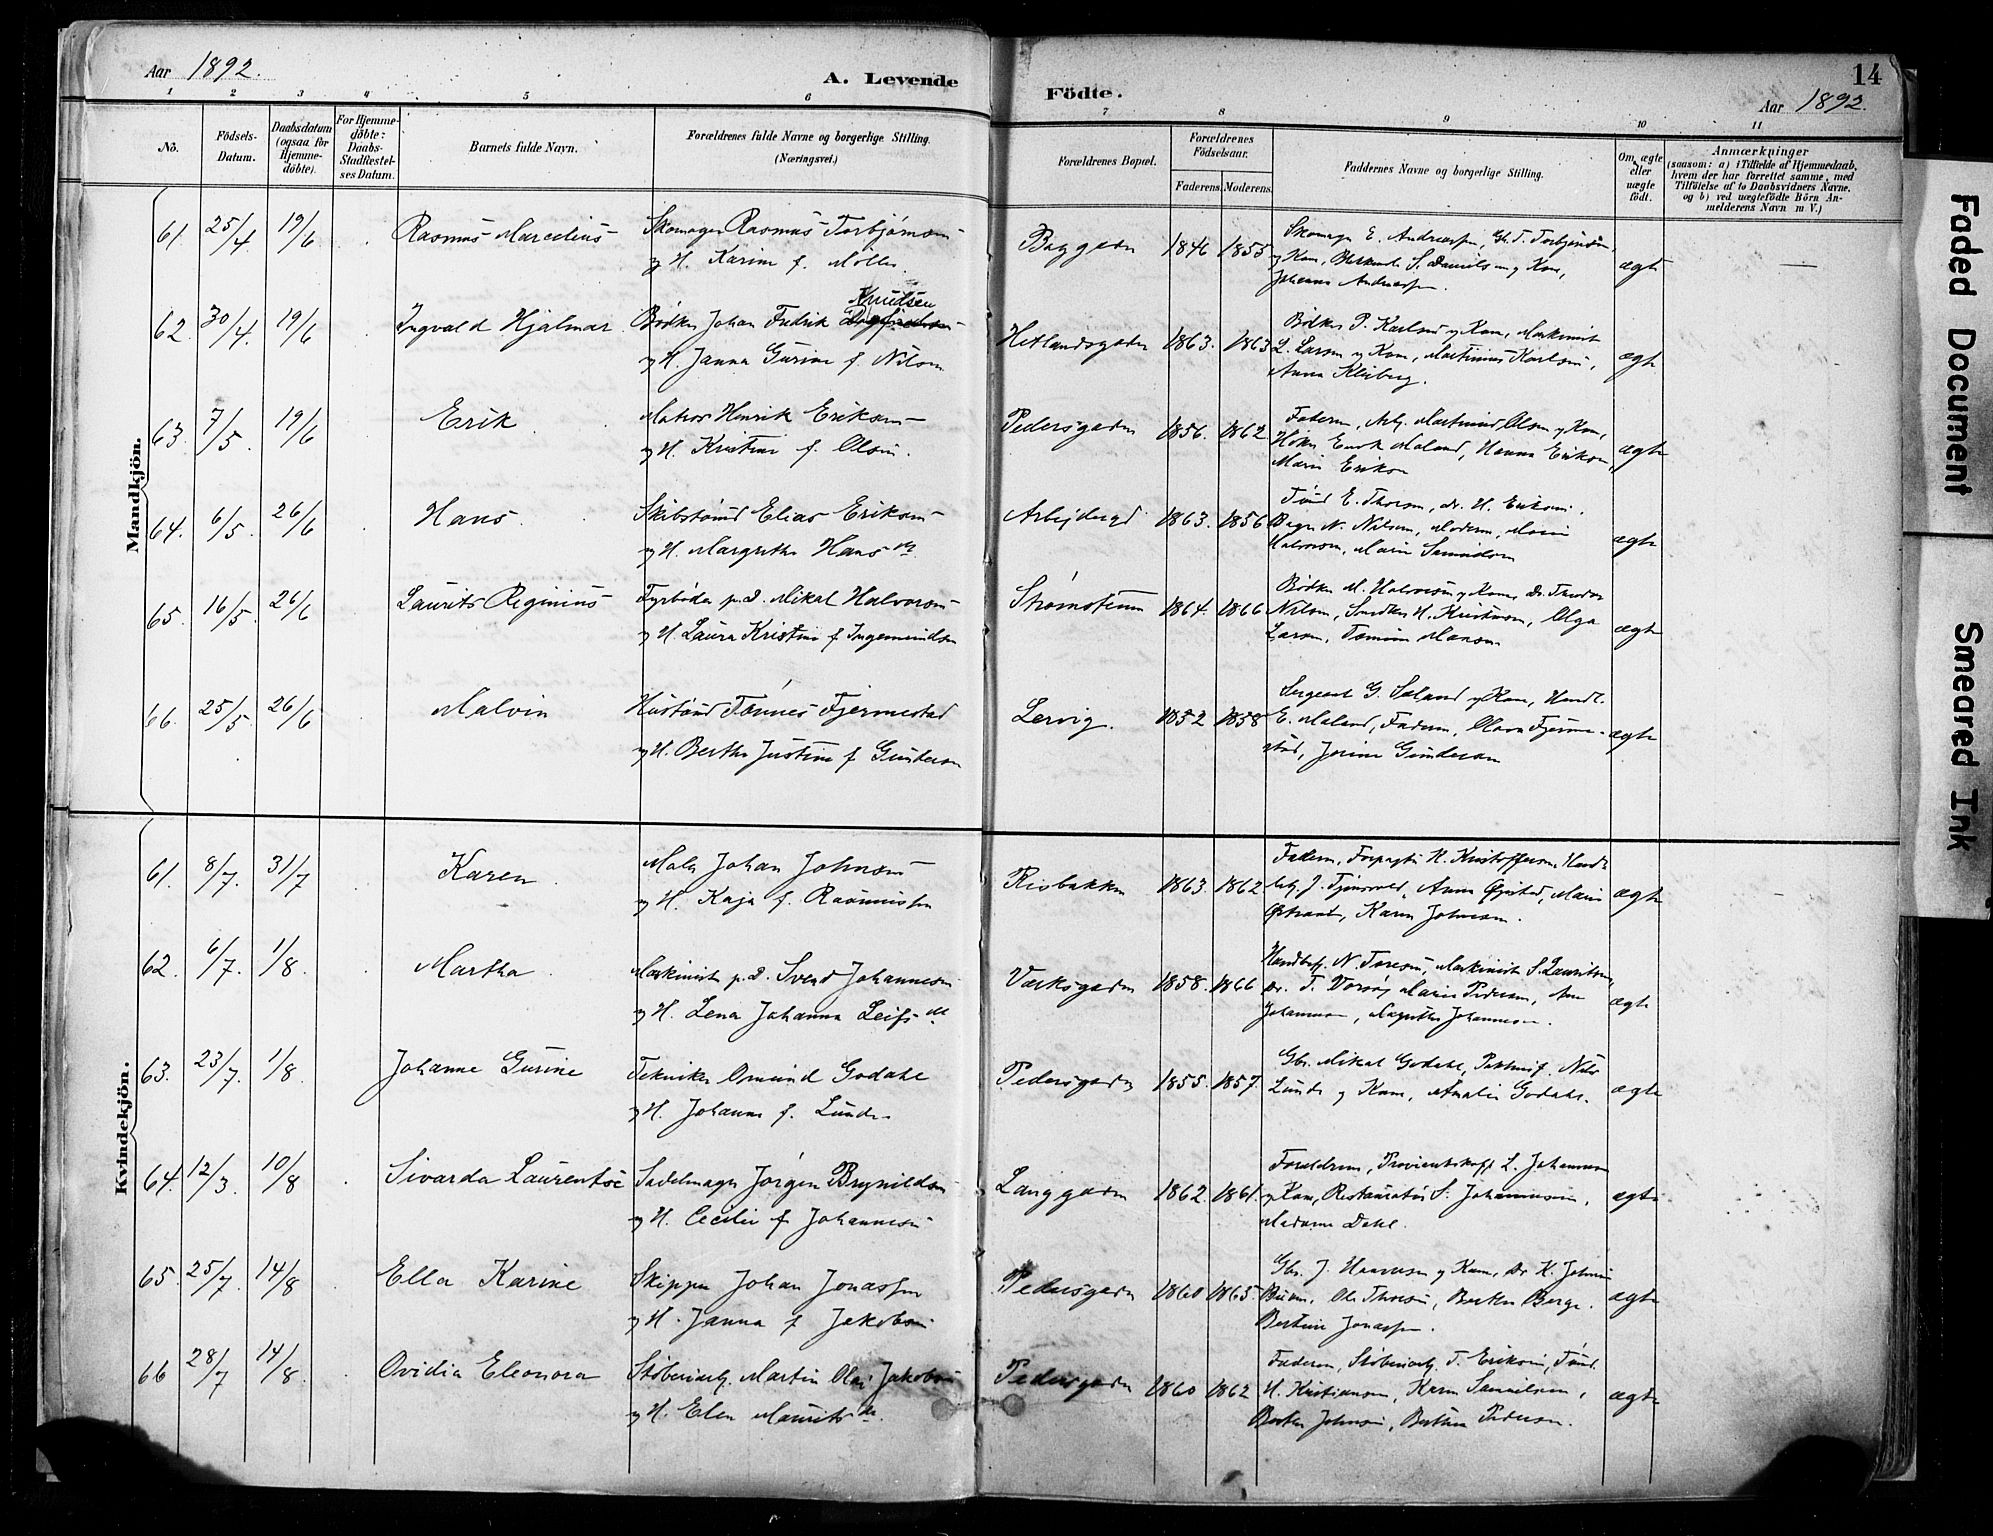 Aar 1892.
A. Levende
Födte.
14
Aar 1892.
1 2 3 4 5 6 7 8 9 10 11
No.
Födsels-Datum.
Daabsdatum (ogsaa for Hjemme-døbte).
For Hjemme-døbte: Daabs-Stadfæstel-ses Datum.
Barnets fulde Navn.
Forældrenes fulde Navne og borgerlige Stilling. (Næringsvei.)
Forældrenes Bopæl.
Forældrenes Födselsaar.
Faderens. Moderens.
Faddernes Navne og borgerlige Stilling.
Om ægte eller uægte født.
Anmærkninger
(saasom: a) i Tilfælde af Hjemmedaab,
hvem der har forrettet samme, med
Tilföielse af to Daabsvidners Navne.
og b) ved uægtefødte Börn An-
melderens Navn m V.)
Mandkjön.
61. 25/4 19/6 Rasmus Marcelius Skomager Rasmus Torbjørnsen 1846 1855 Skomager E. Andreassen, T. Torbjørnsen ægte
og H. Karine f. Møller. og Kone, S. Danielsen og Kone,
Johanna Andreassen.
62. 30/4 19/6 Ingvald Hjalmar Bødker Johan Fredrik Knudsen Hetlandsgaden 1863. 1863 Bødker P. Karlsen og Kone, Maskinist ægte
og H. Janna Gurine f. Nilsen L. Larsen og Kone, Martinius Karlsen,
Anna Kleiberg.
63. 7/5 19/6 Erik Matros Henrik Eriksen Pedersgaden 1856. 1862 Faderen, Arb. Martinius Olsen og Kone, ægte
og H. Kristine f. Olsen. Enok Maland, Hanna Eriksen,
Marie Eriksen
64. 6/5 26/6 Hans. Skibstømd Elias Eriksen Arbejdergd 1863. 1856 Tømd E. Thorsen, dr. H. Eriksen. ægte
og H. Margrethe Hans dr N. Nilsen, Moderen, Marie
Halvorsen, Marie Samuelsen
65. 16/5 26/6 Laurits Reginius Fyrbøder p.d. Mikal Halvorsen Strømsteen 1864. 1866 Bødker M. Halvorsen og Kone, Dr. Theodor ægte
og H. Laura Kristine f. Ingemundsen Nilsen, Snedker H. Kristensen, Olga
Larsen, Tomine Hansen
66. 25/5 26/6 Malvin Hustømd Tønnes Fjermestad Lervig. 1852 1858 Sergeant G. Søland og Kone, Handl. ægte
og H. Berthe Justine f Gundersen E. Maland, Faderen, Olava Fjerme-
stad, Jorine Gundersen
Kvindekjön.
61. 8/7. 31/7 Karen. Maler Johan Johnsen Risbakken 1863. 1862 Faderen, Forpagter H. Kristoffersen, Handl ægte
og H. Kaja f. Rasmussen J. Tjensvold, Anna Øgstad, Marie
Østraat, Karen Johnsen.
62. 6/7. 1/8 Martha. Maskinist p.d. Svend Johannesen Værksgaden 1858. 1866 Handbetj. N. Toresen, Maskinist S. Lauritsen, ægte
og H. Lena Johanna Leifs dr Dr. T. Vorsøy Marie Pedersen, Ane
Johannesen, Magrethe Johannesen.
63. 23/7. 1/8. Johanne Gurine Tekniker Omund Godahl Pedersgaden 1855. 1857. Gbr. Mikal Godahl, Pakhusf. Nils ægte
og H. Johanne f. Lunde Lunde og Kone, Amalie Godahl.
64. 12/3. 10/8 Sivarda Laurentse Sadelmager Jørgen Brynildsen Langgaden 1862 1861. Forældrene, Proviantskaff L. Johannesen ægte
og H. Cecilie f Johannesen og Kone, Restauratør S. Johannesen,
Madame Dahl.
65. 25/7. 14/8 Ella Karine Skipper Johan Jonassen Pedersgaden 1860 1865. Gbr. J. og Kone, Dr K. Johnsen ægte
og H. Janna f Jakobsen Ole Thorsen, Berthe Berge.
Bertine Jonassen.
66 28/7 14/8. Ovidia Eleonora Støberiarb. Martin Olai Jakobsen Pedersgaden 1860 1862 Faderen, Støberiarb. T. Eriksen, Tømd. ægte
og H. Elen Maurits dr. H. Kristiansen, Karen Samuelsen,
Berthe Johnsen, Berthea Pedersen.
Faded Document
Smeared Ink